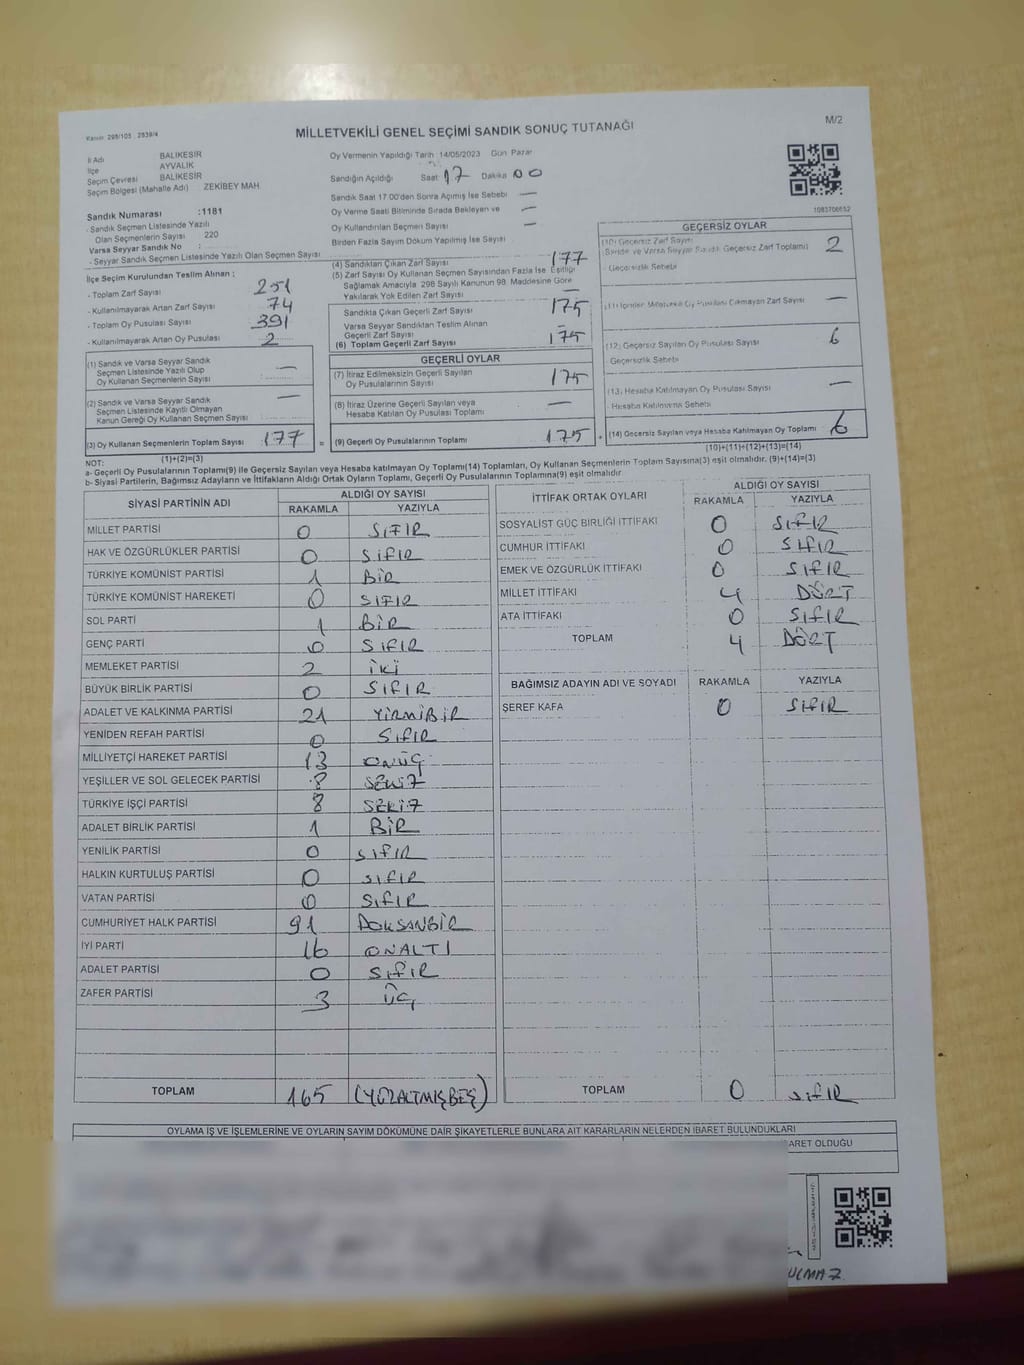 MİLLETVEKİLİ GENEL SEÇİMİ SANDIK SONUÇ TUTANAĞI
M/2
İl Adı BALIKESİR
İlçe AYVALIK
Seçim Çevresi BALIKESİR
Seçim Bölgesi (Mahalle Adı) ZEKİBEY MAH.
Oy Vermenin Yapıldığı Tarih 14/05/2023 Gün Pazar
Sandığın Açıldığı Saat 17 Dakika 00
Sandık Saat 17.00'den Sonra Açımış İse Sebebi —
Oy Verme Saati Bitiminde Sırada Bekleyen ve —
Oy Kullandırılan Seçmen Sayısı —
Birden Fazla Sayım Döküm Yapılmış İse Sayısı
1083706652
Sandık Numarası :1181
- Sandık Seçmen Listesinde Yazılı
Olan Seçmenlerin Sayısı 220
Varsa Seyyar Sandık No :
- Seyyar Sandık Seçmen Listesinde Yazılı Olan Seçmen Sayısı
İlçe Seçim Kurulundan Teslim Alınan ;
- Toplam Zarf Sayısı 251
- Kullanılmayarak Artan Zarf Sayısı 74
- Toplam Oy Pusulası Sayısı 391
- Kullanılmayarak Artan Oy Pusulası 2
(1) Sandık ve Varsa Seyyar Sandık
Seçmen Listesinde Yazılı Olup
Oy Kullanan Seçmenlerin Sayısı —
(2) Sandık ve Varsa Seyyar Sandık
Seçmen Listesinde Kayıtlı Olmayan
Kanun Gereği Oy Kullanan Seçmen Sayısı —
(3) Oy Kullanan Seçmenlerin Toplam Sayısı 177 =
(1)+(2)=(3)
(4) Sandıktan Çıkan Zarf Sayısı 177
(5) Zarf Sayısı Oy Kullanan Seçmen Sayısından Fazla İse Eşitliği
Sağlamak Amacıyla 298 Sayılı Kanunun 98. Maddesine Göre
Yakılarak Yok Edilen Zarf Sayısı —
Sandıkta Çıkan Geçerli Zarf Sayısı 175
Varsa Seyyar Sandıktan Teslim Alınan
Geçerli Zarf Sayısı —
(6) Toplam Geçerli Zarf Sayısı 175
GEÇERLİ OYLAR
(7) İtiraz Edilmeksizin Geçerli Sayılan
Oy Pusulalarının Sayısı 175
(8) İtiraz Üzerine Geçerli Sayılan veya
Hesaba Katılan Oy Pusulası Toplamı —
(9) Geçerli Oy Pusulalarının Toplamı 175 +
GEÇERSİZ OYLAR
(10) Geçersiz Zarf Sayısı
Geçersiz Zarf Toplamı) 2
- Geçersizlik Sebebi
Çıkmayan Zarf Sayısı —
(12) Geçersiz Sayılan Oy Pusulası Sayısı 6
Geçersizlik Sebebi
(13) Hesaba Katılmayan Oy Pusulası Sayısı —
Hesaba Katılmama Sebebi
(14) Geçersiz Sayılan veya Hesaba Katılmayan Oy Toplamı 6
(10)+(11)+(12)+(13)=(14)
NOT:
a- Geçerli Oy Pusulalarının Toplamı(9) ile Geçersiz Sayılan veya Hesaba katılmayan Oy Toplamı(14) Toplamları, Oy Kullanan Seçmenlerin Toplam Sayısına(3) eşit olmalıdır. (9)+(14)=(3)
b- Siyasi Partilerin, Bağımsız Adayların ve İttifakların Aldığı Ortak Oyların Toplamı, Geçerli Oy Pusulalarının Toplamına(9) eşit olmalıdır
SİYASİ PARTİNİN ADI ALDIĞI OY SAYISI
RAKAMLA YAZIYLA
MİLLET PARTİSİ 0 SIFIR
HAK VE ÖZGÜRLÜKLER PARTİSİ 0 SIFIR
TÜRKİYE KOMÜNİST PARTİSİ 1 BİR
TÜRKİYE KOMÜNİST HAREKETİ 0 SIFIR
SOL PARTİ 1 BİR
GENÇ PARTİ 0 SIFIR
MEMLEKET PARTİSİ 2 İKİ
BÜYÜK BİRLİK PARTİSİ 0 SIFIR
ADALET VE KALKINMA PARTİSİ 21 YİRMİBİR
YENİDEN REFAH PARTİSİ 0 SIFIR
MİLLİYETÇİ HAREKET PARTİSİ 13 ONÜÇ
YEŞİLLER VE SOL GELECEK PARTİSİ 8 SEKİZ
TÜRKİYE İŞÇİ PARTİSİ 8 SEKİZ
ADALET BİRLİK PARTİSİ 1 BİR
YENİLİK PARTİSİ 0 SIFIR
HALKIN KURTULUŞ PARTİSİ 0 SIFIR
VATAN PARTİSİ 0 SIFIR
CUMHURİYET HALK PARTİSİ 91 DOKSANBİR
İYİ PARTİ 16 ONALTI
ADALET PARTİSİ 0 SIFIR
ZAFER PARTİSİ 3 ÜÇ
TOPLAM 165 (YÜZALTMIŞBEŞ)
İTTİFAK ORTAK OYLARI ALDIĞI OY SAYISI
RAKAMLA YAZIYLA
SOSYALİST GÜÇ BİRLİĞİ İTTİFAKI 0 SIFIR
CUMHUR İTTİFAKI 0 SIFIR
EMEK VE ÖZGÜRLÜK İTTİFAKI 0 SIFIR
MİLLET İTTİFAKI 4 DÖRT
ATA İTTİFAKI 0 SIFIR
TOPLAM 4 DÖRT
BAĞIMSIZ ADAYIN ADI VE SOYADI RAKAMLA YAZIYLA
ŞEREF KAFA 0 SIFIR
TOPLAM 0 SIFIR
OYLAMA İŞ VE İŞLEMLERİNE VE OYLARIN SAYIM DÖKÜMÜNE DAİR ŞİKAYETLERLE BUNLARA AİT KARARLARIN NELERDEN İBARET BULUNDUKLARI
OLDUĞU